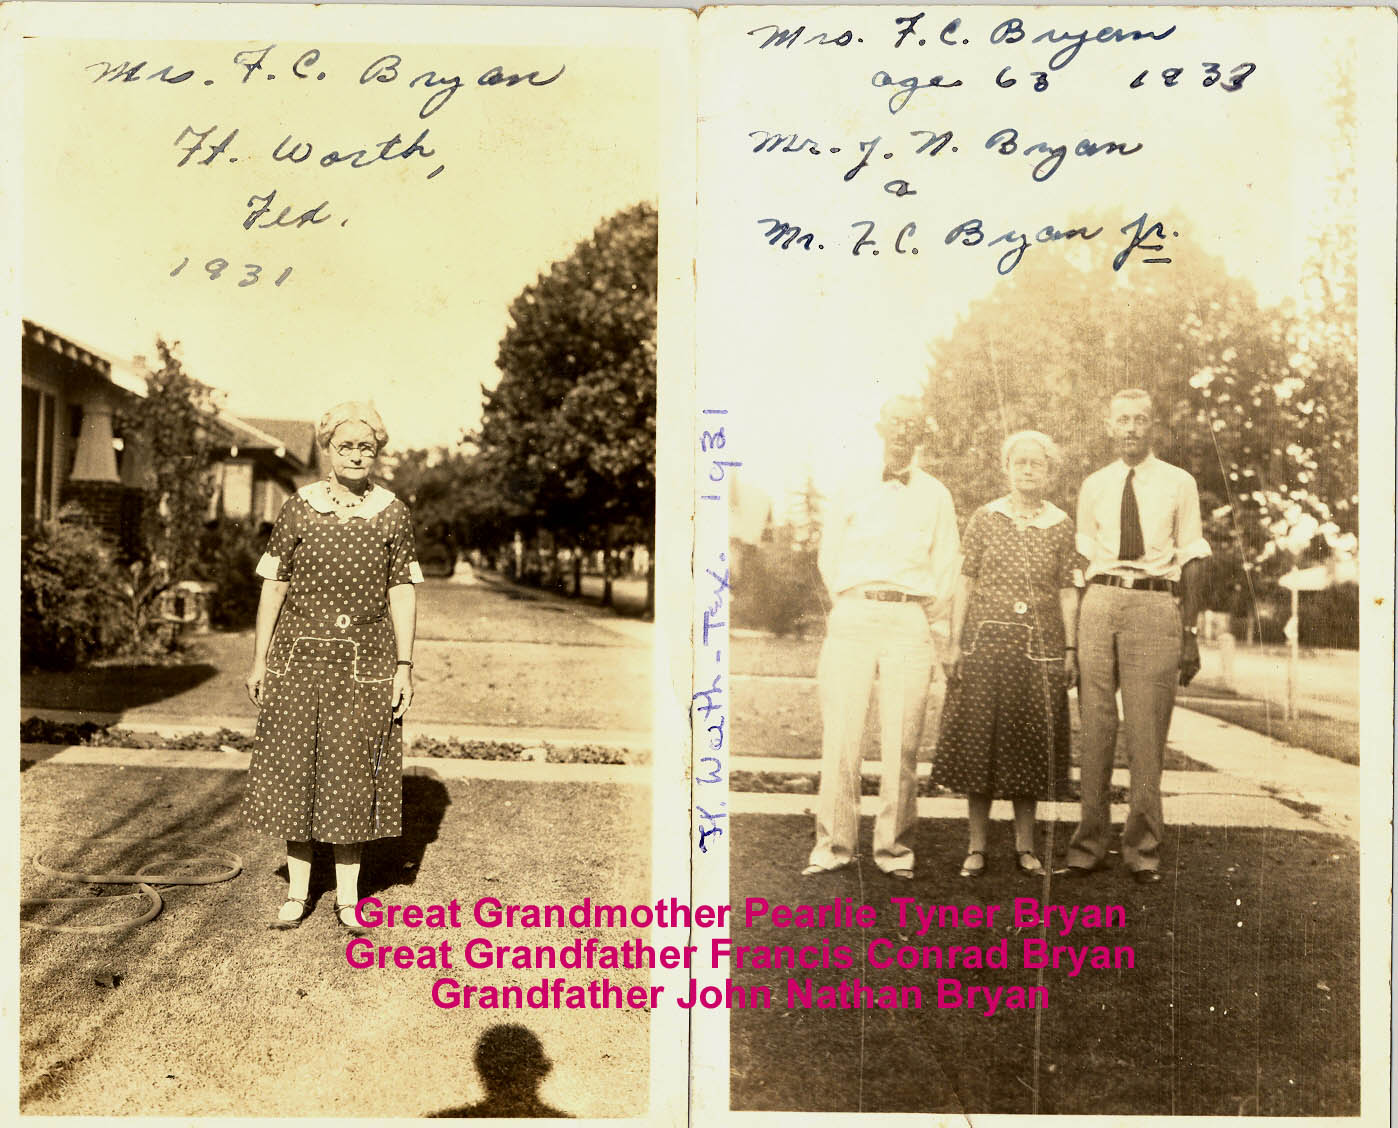 Mrs. F. C. Bryan
Ft. Worth,
Tex.
1931
Mrs. F. C. Bryan
age 63
Mr. J. N. Bryan
a
Mr. F. C. Bryan Jr.
Ft. Worth - Tex. 1931
Great Grandmother Pearlie Tyner Bryan
Great Grandfather Francis Conrad Bryan
Grandfather John Nathan Bryan